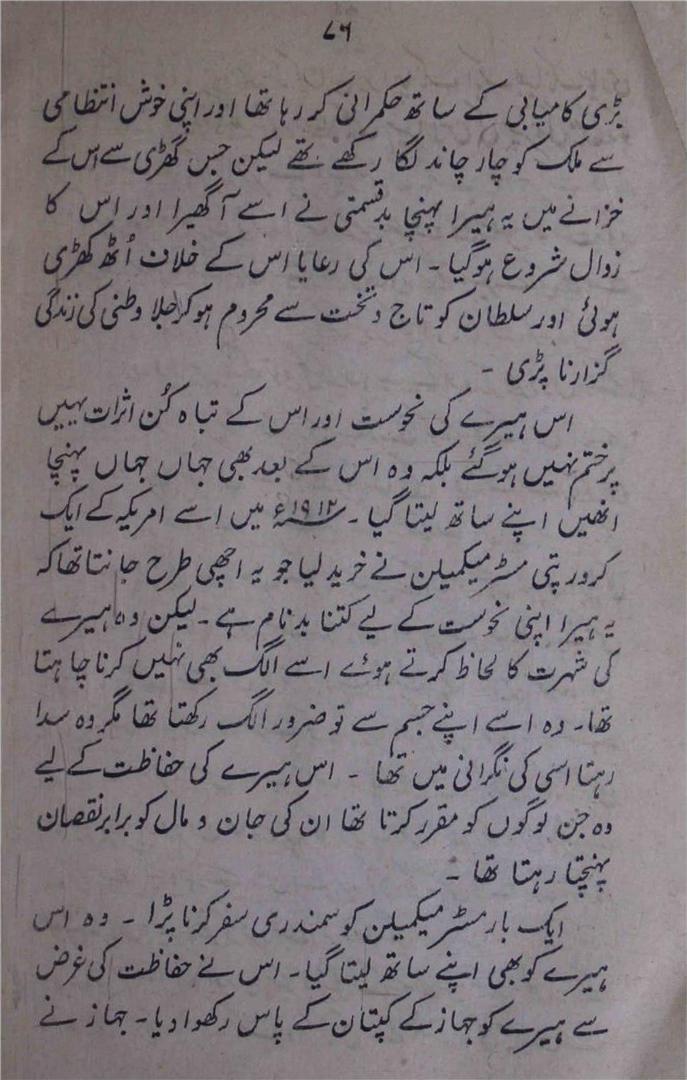 ۷۶
بڑی کامیابی کے ساتھ حکمرانی کر رہا تھا اور اپنی خوش انتظامی
سے ملک کو چار چاند لگا رکھے تھے لیکن جس گھڑی سے اس کے
خزانے میں یہ ہیرا پہنچا بدقسمتی نے اسے آ گھیرا اور اس کا
زوال شروع ہوگیا ۔ اس کی رعایا اس کے خلاف اُٹھ کھڑی
ہوئی اور سلطان کو تاج و تخت سے محروم ہوکر جلا وطنی کی زندگی
گزارنا پڑی ۔
اس ہیرے کی نحوست اور اس کے تباہ کُن اثرات یہیں
پر ختم نہیں ہوگئے بلکہ وہ اس کے بعد بھی جہاں جہاں پہنچا
انھیں اپنے ساتھ لیتا گیا ۔ ۱۹۱۲ء میں اسے امریکہ کے ایک
کروڑ پتی مسٹر میکمیلن نے خرید لیا جو یہ اچھی طرح جانتا تھا کہ
یہ ہیرا اپنی نحوست کے لیے کتنا بدنام ہے ۔ لیکن وہ ہیرے
کی شہرت کا لحاظ کرتے ہوئے اسے الگ بھی نہیں کرنا چاہتا
تھا ۔ وہ اسے اپنے جسم سے تو ضرور الگ رکھتا تھا مگر وہ سدا
رہتا اسی کی نگرانی میں تھا ۔ اس ہیرے کی حفاظت کے لیے
وہ جن لوگوں کو مقرر کرتا تھا ان کی جان و مال کو برابر نقصان
پہنچتا رہتا تھا ۔
ایک بار مسٹر میکمیلن کو سمندری سفر کرنا پڑا ۔ وہ اس
ہیرے کو بھی اپنے ساتھ لیتا گیا ۔ اس نے حفاظت کی غرض
سے ہیرے کو جہاز کے کپتان کے پاس رکھوا دیا ۔ جہاز نے